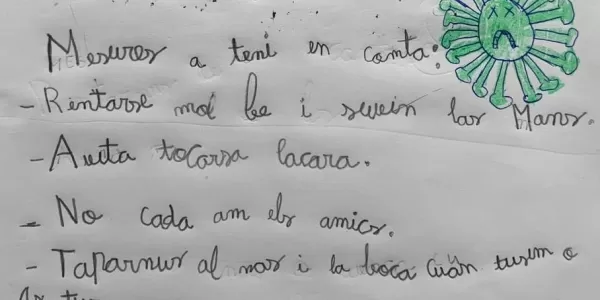 Mesures a teni en comta:
- Rentarse mol be i suein las Mans.
- Auita tocarsa lacara.
- No cada am els amics.
- Taparnus al nas i la boca cuan tusim o